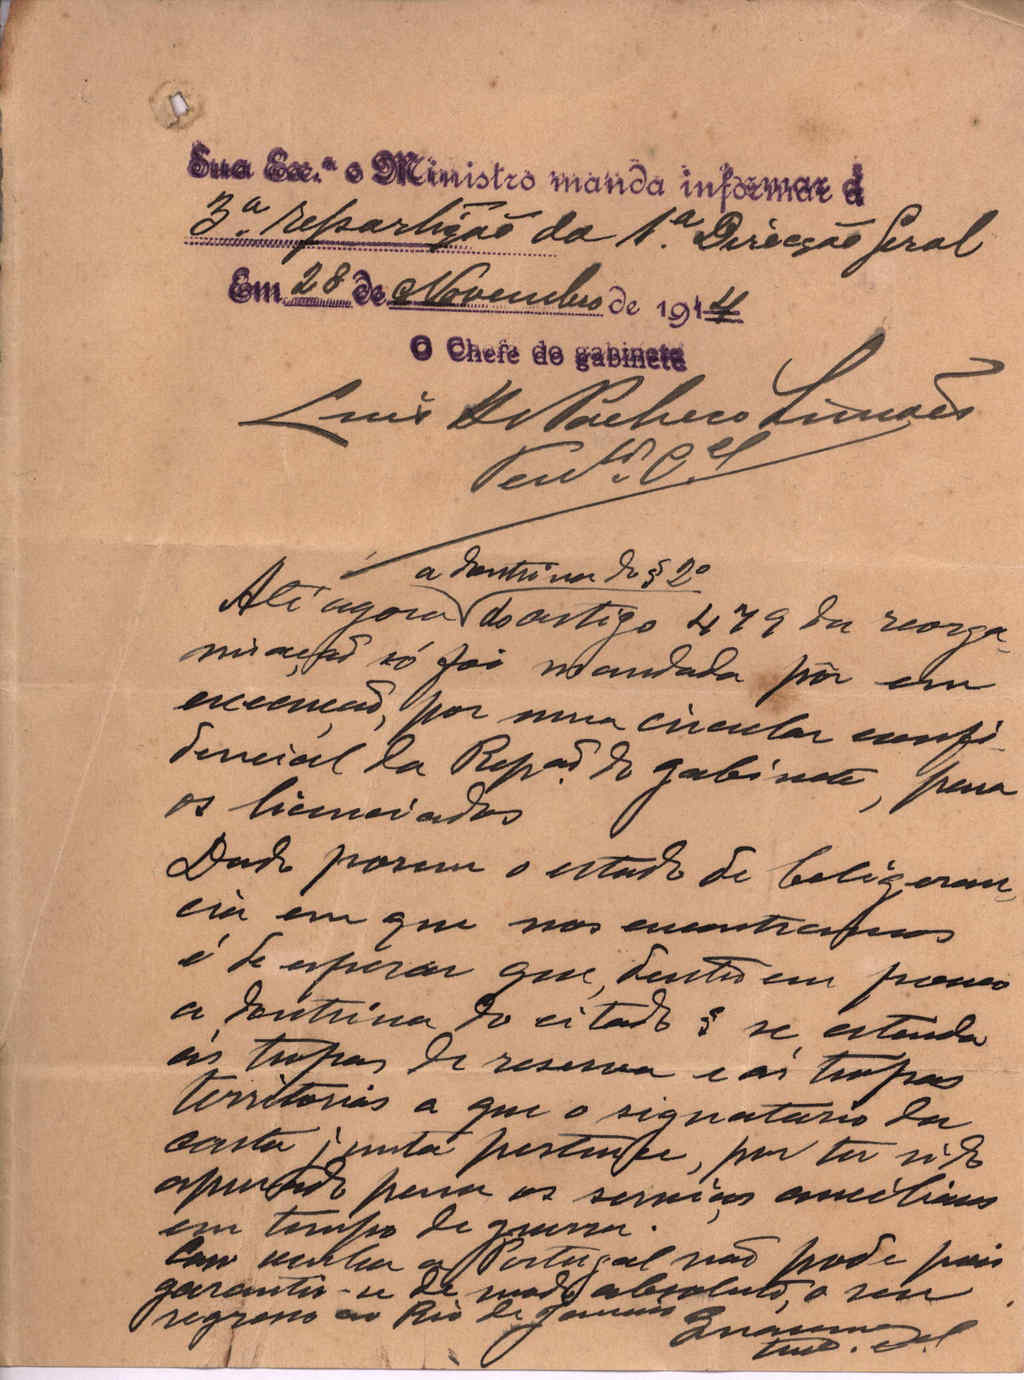 Sua Ex.ª o Ministro manda informar á
3.ª repartição da 1.ª Direcção Geral
Em 28 de Novembro de 1914
O Chefe do gabinete
Luis Pacheco Simões
Ten.te C.el
a doutrina do § 2º
Até agora do artigo 479 da reorga-
nisação só foi mandada pôr em
execução, por uma circular confi-
dencial da Rep.ão do gabinete, para
os licenciados
Dado porem o estado de beligeran-
cia em que nos encontramos
é de esperar que, dentro em pouco
a doutrina do citado § se estenda
ás tropas de reserva e ás tropas
territoriais a que o signatario da
carta junta pertence, por ter sido
apurado para os serviços auxiliares
em tempo de guerra.
Caso venha a Portugal não pode pois
garantir-se de modo absoluto, o seu
regresso ao Rio de Janeiro